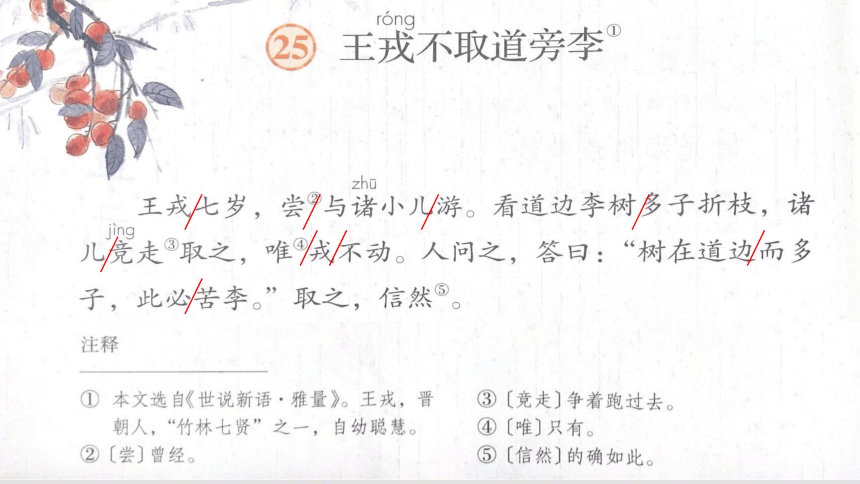 róng
25 王戎不取道旁李①
zhū
王戎/七岁，尝②/与诸小儿/游。看道边李树/多子折枝，诸
jìng
儿/竞走③取之，唯④/戎/不动。人问之，答曰：“树在道边/而多
子，此必/苦李。”取之，信然⑤。
注释
① 本文选自《世说新语·雅量》。王戎，晋
朝人，“竹林七贤”之一，自幼聪慧。
②〔尝〕曾经。
③〔竞走〕争着跑过去。
④〔唯〕只有。
⑤〔信然〕的确如此。